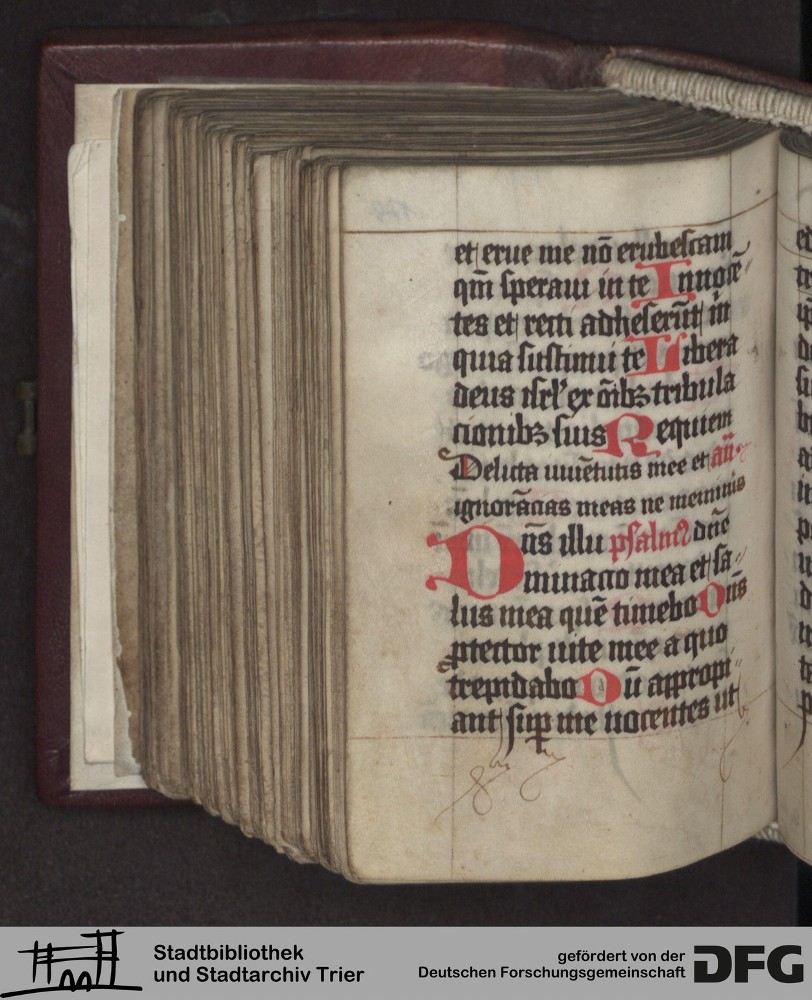 et erue me nō erubescam
qm̄ speraui in te Innocē
tes et recti adheserūt m̄
quia sustinui te Libera
deus isrl' ex oībꝫ tribula
cionibꝫ suis Requiem
Delicta iuuētutis mee et an̄
ignorācias meas ne meminis
Dn̄s illu psalmꝰ dn̄e
minacio mea et sa
lus mea quē timebo Dn̄s
ꝓtector uite mee a quo
trepidabo Dū appropi
ant suꝑ me nocentes ut
Stadtbibliothek
und Stadtarchiv Trier
gefördert von der
Deutschen Forschungsgemeinschaft
DFG